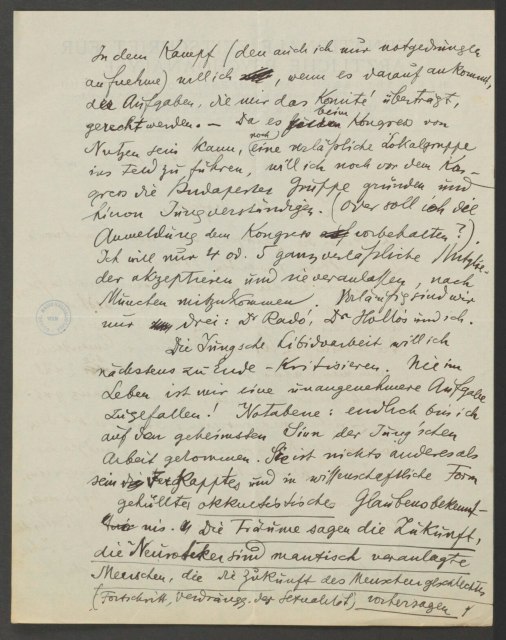 In dem Kampf (den auch ich nur notgedrungen
aufnehme) will ich , wenn es darauf ankommt,
der Aufgaben, die mir das Komité überträgt,
gerecht werden. – Da es beim Kongress von
Nutzen sein kann, noch eine verläßliche Lokalgruppe
ins Feld zu führen, will ich noch vor dem Kon-
gress die Budapester Gruppe gründen und
hievon Jung verständigen. (Oder soll ich die
Anmeldung dem Kongress vorbehalten?).
Ich will nur 4 od. 5 ganz verläßliche Mitglie-
der akzeptieren und sie veranlassen, nach
München mitzukommen. Vorläufig sind wir
nur drei: Dr Radó, Dr Hollós und ich.
Die Jungsche Libidoarbeit will ich
nächstens zu Ende-Kritisieren. Nie im
Leben ist mir eine unangenehmere Aufgabe
zugefallen! Notabene: endlich bin ich
auf den geheimsten Sinn der Jung'schen
Arbeit gekommen. Sie ist nichts anderes als
sein verkapptes und in wissenschaftliche Form
gehülltes okkultistisches Glaubensbekennt-
nis. Die Träume sagen die Zukunft,
die Neurotiker sind mantisch veranlagte
Menschen, die die Zukunft des Menschengeschlechtes
(Fortschritt, Verdrängg. der Sexualität) vorhersagen